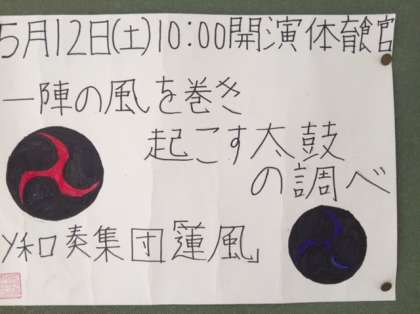 5月12日(土)10:00開演体育館
一陣の風を巻き
起こす太鼓
の調べ
Y和奏集団「蓮風」